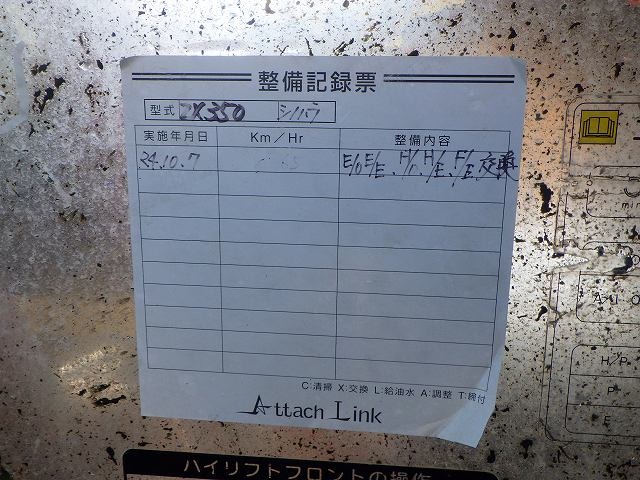 整備記録票
型式 ZX350 シノハラ
実施年月日 Km/Hr 整備内容
24.10.7 E/O E/E、H/T、H/E、F/E、交換
C:清掃 X:交換 L:給油水 A:調整 T:締付
Attach Link
ハイリフトフロントの操作
A U O
H/P
P
E